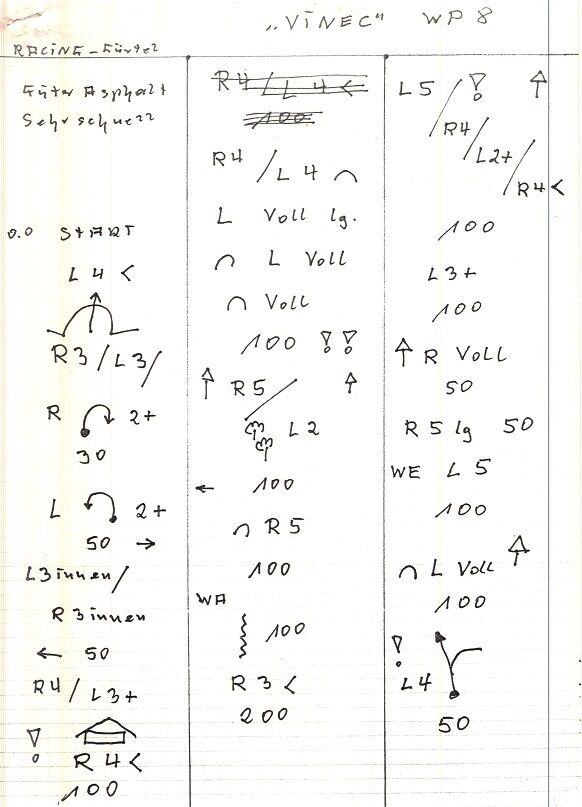 „VINEC" WP 8
RACING-Gürtel
Guter Asphalt
Sehr schnell
0.0 START
L 4 <
R3/L3/
R 2+
30
L 2+
50 →
L3innen/
R3innen
← 50
R4/L3+
! R4<
100
R4/L4<
100
R4/L4 ∩
L Voll lg.
∩ L Voll
∩ Voll
100 !!
↑ R5 / ↑
L2
← 100
∩ R5
100
WA
100
R3<
200
L5/! ↑
R4/
L2+/
R4<
100
L3+
100
↑ R Voll
50
R5 lg 50
WE L5
100
∩ L Voll ↑
100
! L4
50